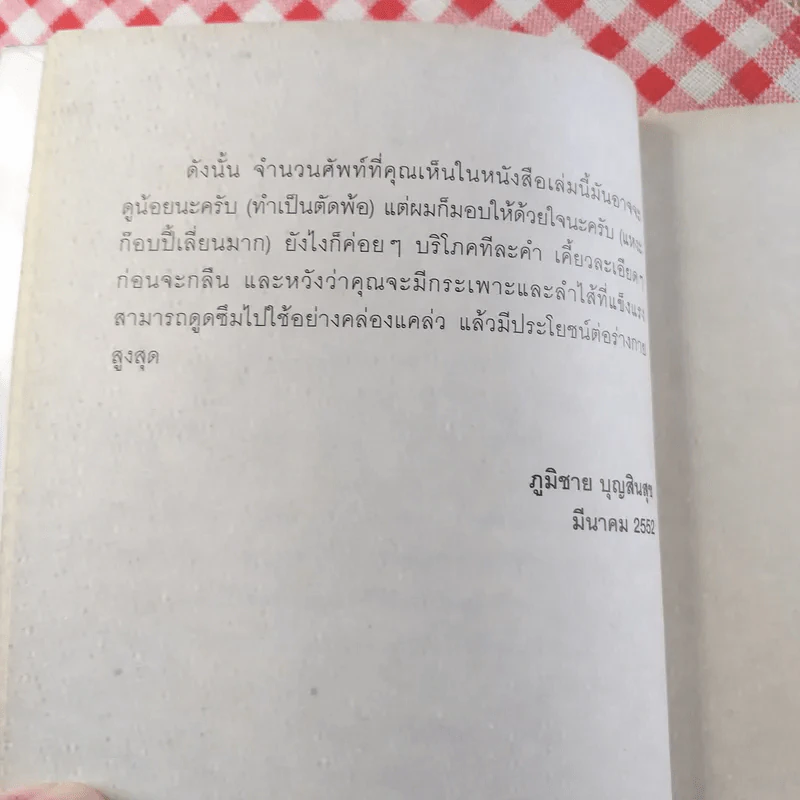 ดังนั้น จำนวนศัพท์ที่คุณเห็นในหนังสือเล่มนี้มันอาจจะ
ดูน้อยนะครับ (ทำเป็นตัดพ้อ) แต่ผมก็มอบให้ด้วยใจนะครับ (แหนะ
ก๊อบปี้เลี่ยนมาก) ยังไงก็ค่อยๆ บริโภคทีละคำ เคี้ยวละเอียดๆ
ก่อนจะกลืน และหวังว่าคุณจะมีกระเพาะและลำไส้ที่แข็งแรง
สามารถดูดซึมไปใช้อย่างคล่องแคล่ว แล้วมีประโยชน์ต่อร่างกาย
สูงสุด
ภูมิชาย บุญสินสุข
มีนาคม 2552